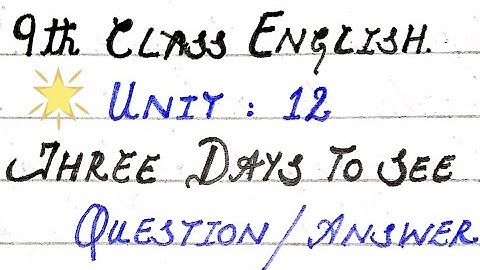 9th CLASS ENGLISH.
UNIT : 12
THREE DAYS TO SEE
QUESTION/ANSWER